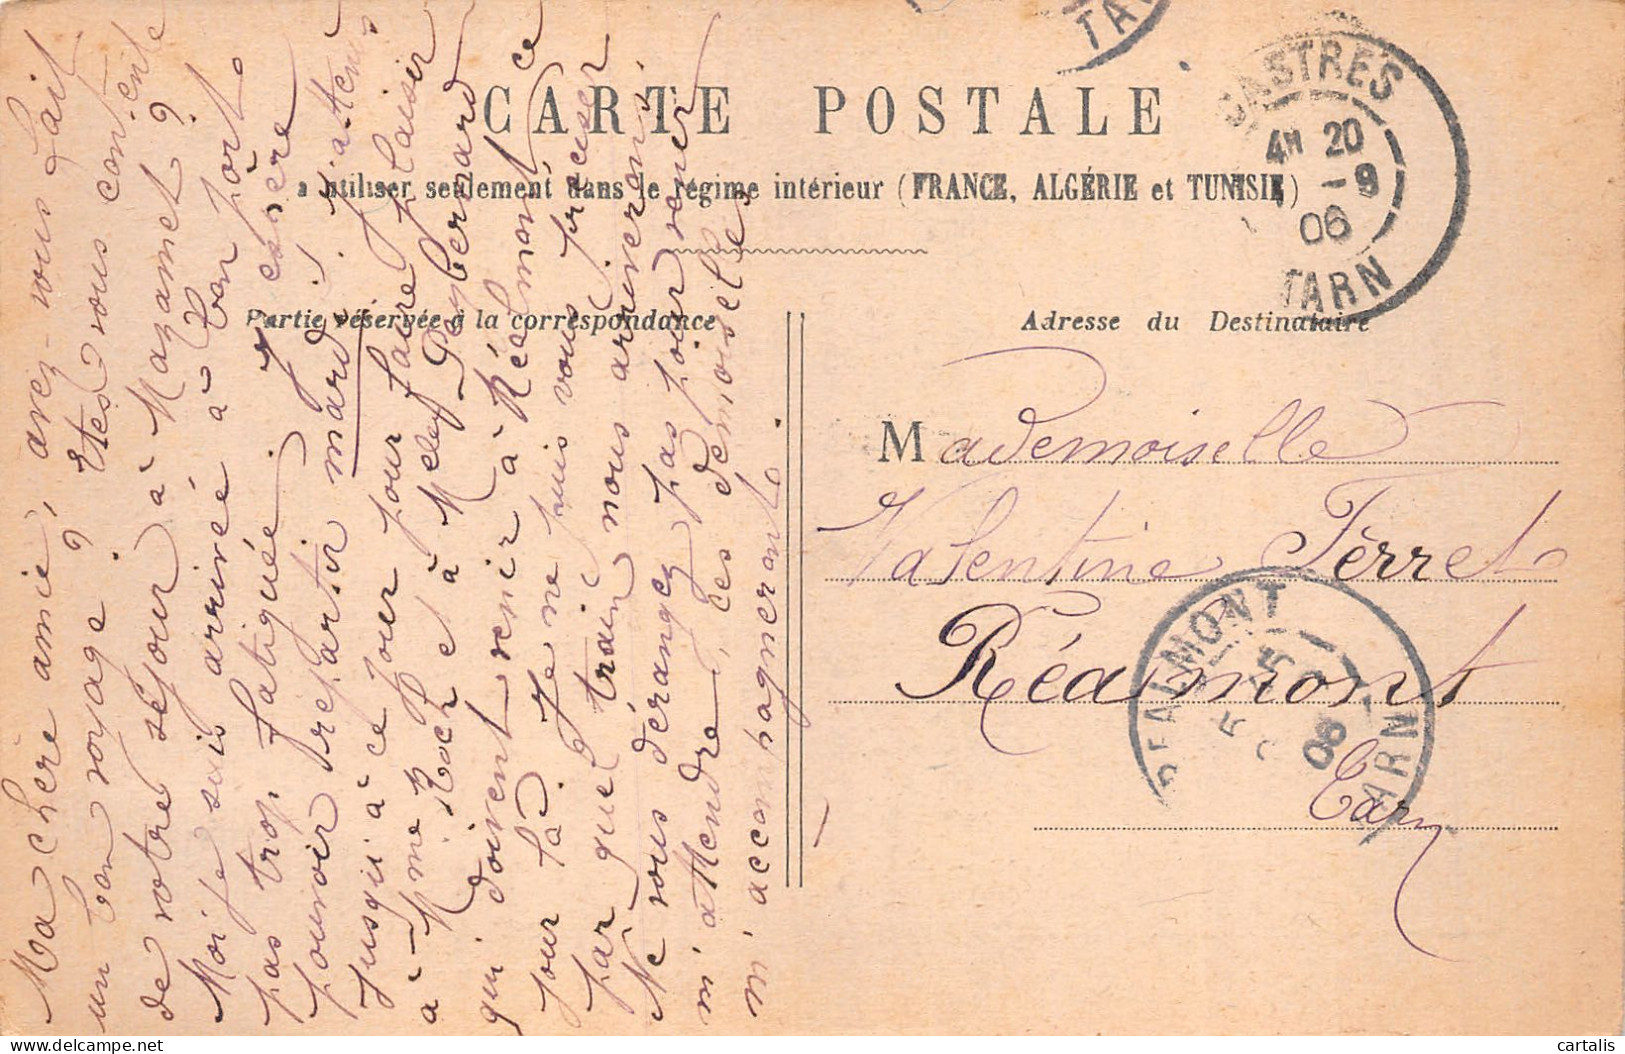 TAR
CARTE POSTALE
a utiliser seulement dans le régime intérieur (FRANCE, ALGÉRIE et TUNISIE)
CASTRES
20
-9
06
TARN
Partie réservée à la correspondance
Adresse du Destinataire
Mademoiselle
Valentine Ferret
Réalmont
Tarn
REALMONT
06
TARN
Ma chère amie, avez-vous fait
un bon voyage ? Etes vous contente
de votre séjour à Mazamet ?
Moi je suis arrivée à bon port.
pas trop fatiguée. J'espère
pouvoir repartir mardi, j'attens
jusqu'à ce jour pour faire plaisir
à Mme Roch et à Melle Peybernard
qui doivent venir à Réalmont ce
jour là. Je ne puis vous préciser
par quel train nous arriverons.
Ne vous dérangez pas pour venir
m'attendre, ces demoiselles
m'accompagneront.
cartalis
delcampe.net